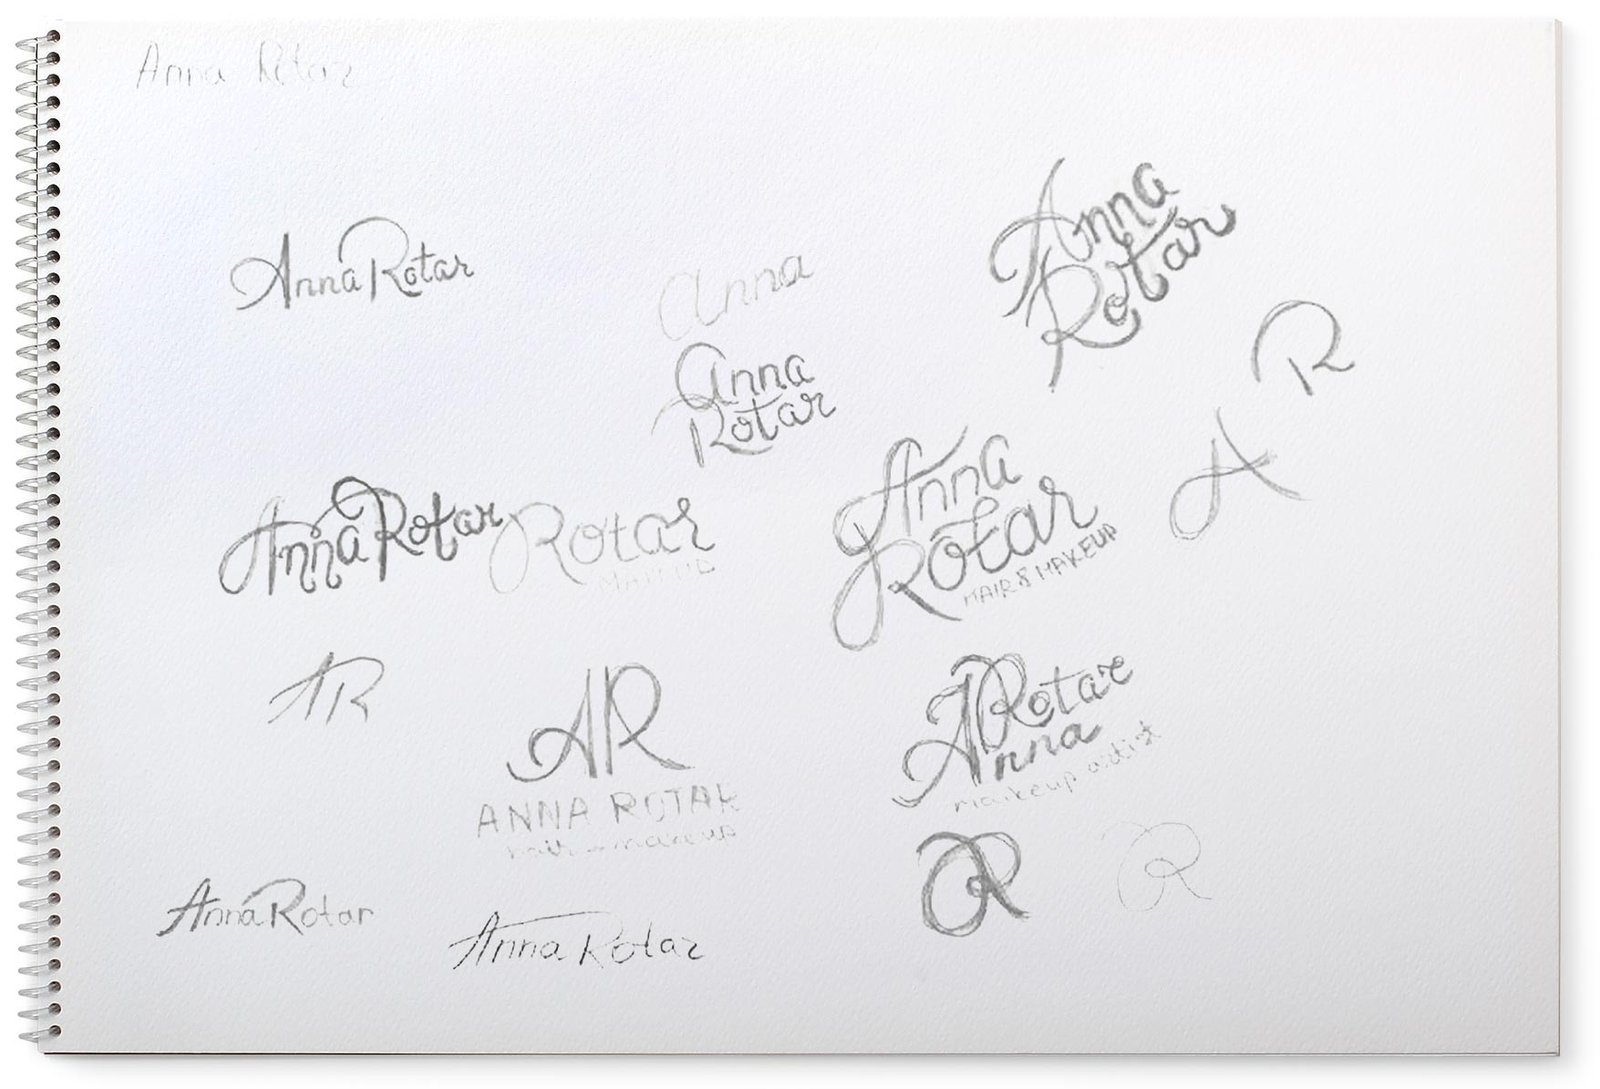 Anna Rotar
Anna Rotar
Anna
Anna
Rotar
Anna
Rotar
R
A
Anna Rotar
Rotar
MAKEUP
Anna
Rotar
HAIR & MAKEUP
AR
AR
ANNA ROTAR
hair & makeup
Rotar
Anna
makeup artist
R
R
Anna Rotar
Anna Rotar